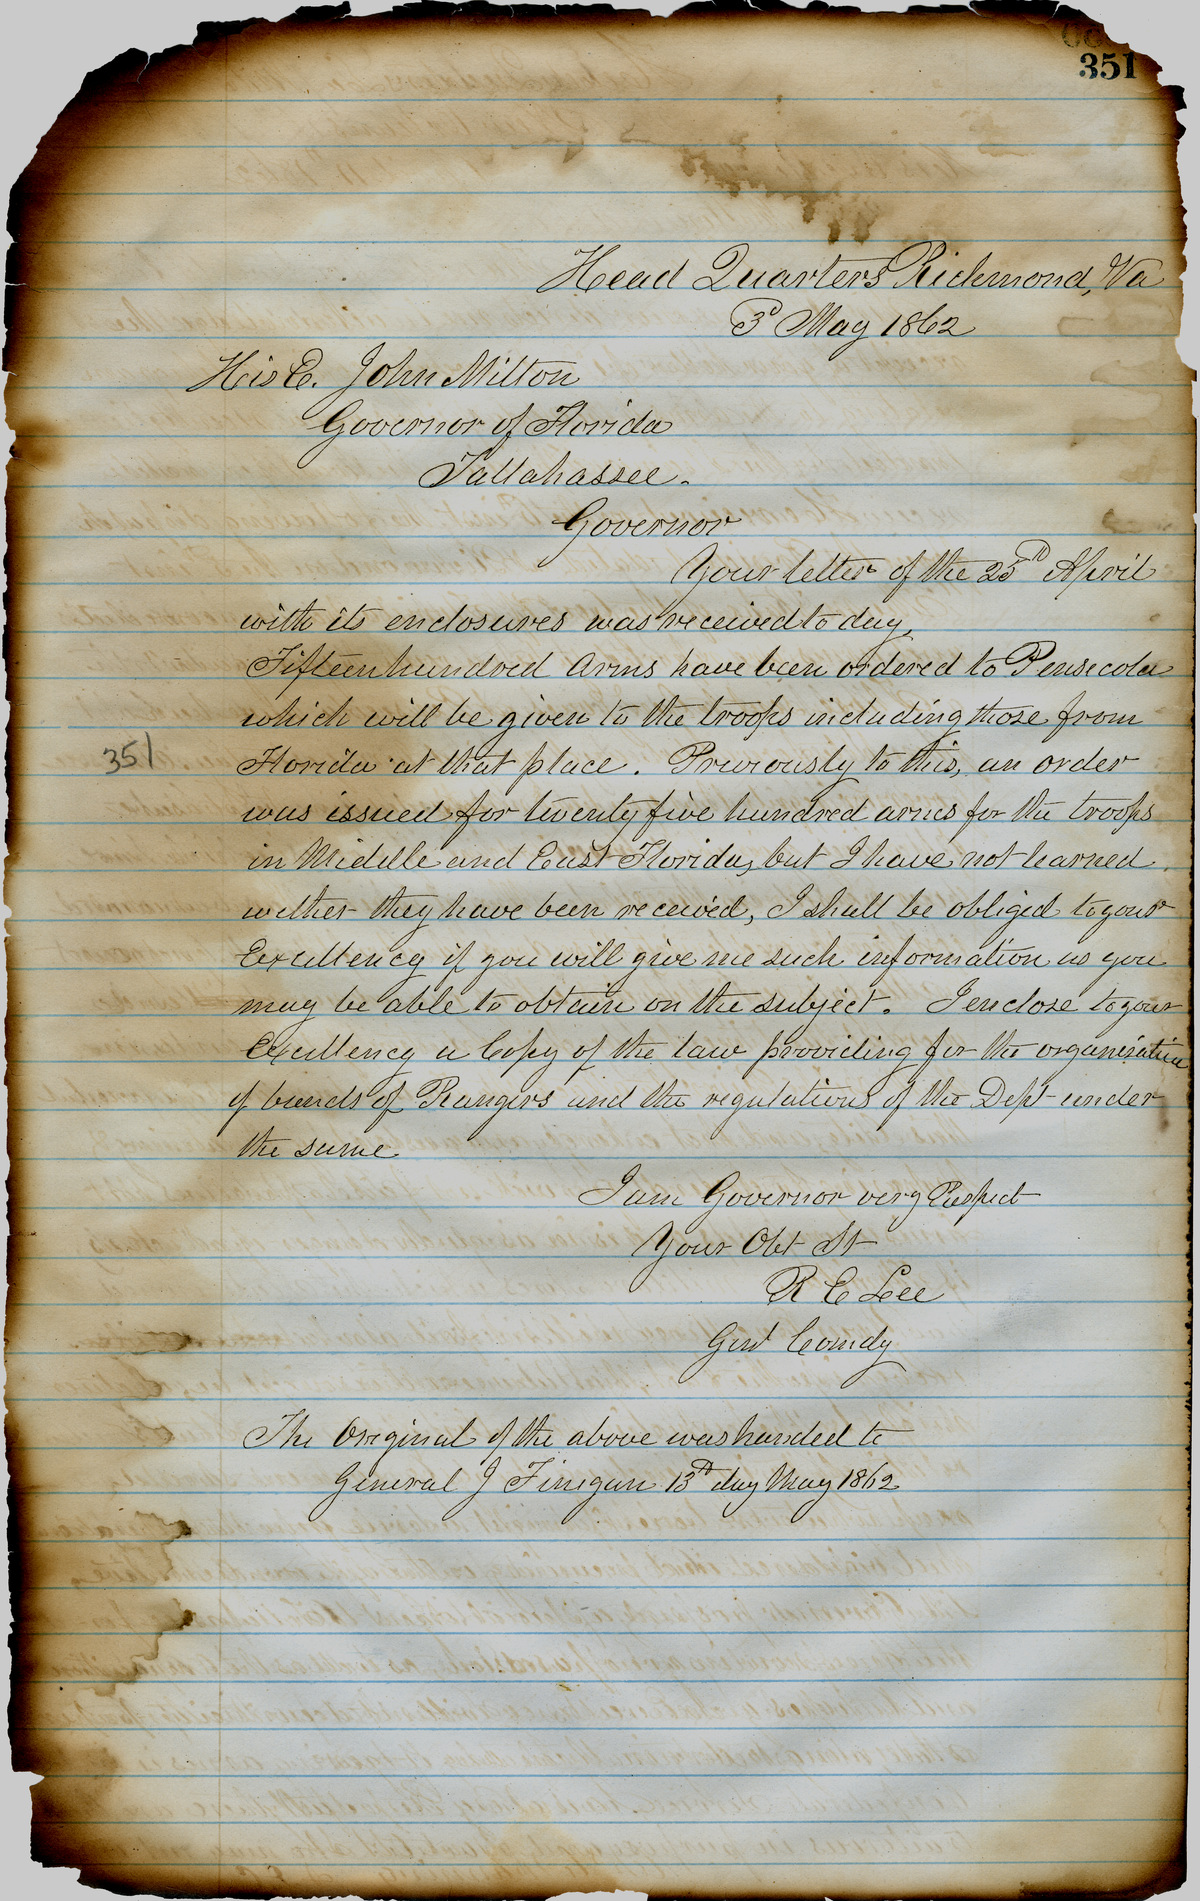 351
Head Quarters Richmond, Va
3d May 1862
His E. John Milton
Governor of Florida
Tallahassee.
Governor
Your letter of the 25th April
with its enclosures was received to day,
Fifteen hundred arms have been ordered to Pensecola
which will be given to the troops including those from
351
Florida at that place. Previously to this, an order
was issued for twenty five hundred arms for the troops
in Middle and East Florida, but I have not learned
wether they have been received, I shall be obliged to your
Excellency if you will give me such information as you
may be able to obtain on the subject. I enclose to your
Excellency a Copy of the law providing for the organisation
of bands of Rangers and the regulations of the Dept under
the same
I am Governor very Respect
Your Obt St
R E Lee
Genl Comdg
The Original of the above was handed to
General J Finegan 13th day May 1862